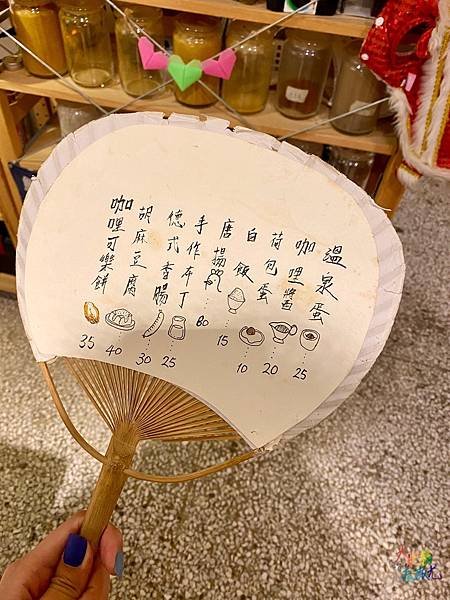 溫泉蛋 25
咖哩醬 20
荷包蛋 10
白飯 15
唐揚 80
手作布丁 25
德式香腸 30
胡麻豆腐 40
咖哩可樂餅 35